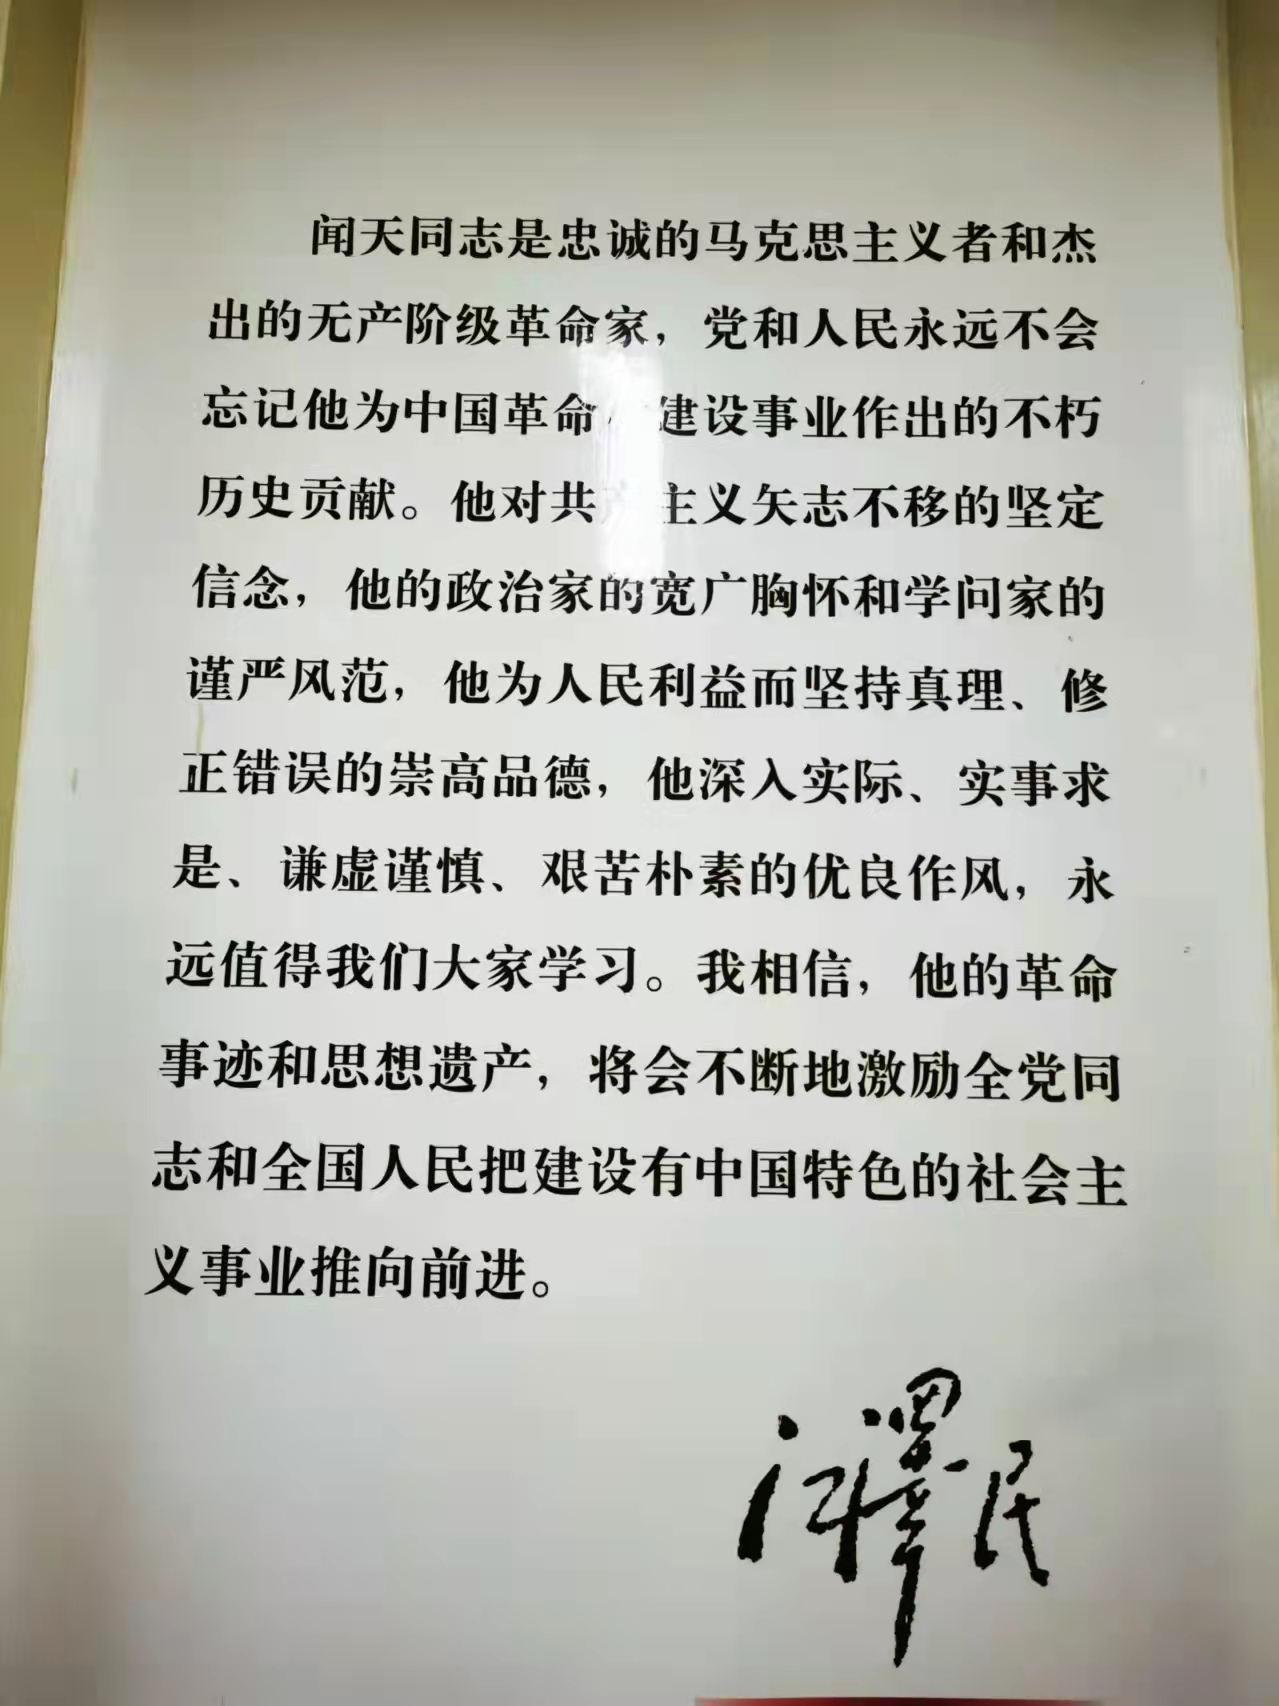 闻天同志是忠诚的马克思主义者和杰
出的无产阶级革命家，党和人民永远不会
忘记他为中国革命建设事业作出的不朽
历史贡献。他对共产主义矢志不移的坚定
信念，他的政治家的宽广胸怀和学问家的
谨严风范，他为人民利益而坚持真理、修
正错误的崇高品德，他深入实际、实事求
是、谦虚谨慎、艰苦朴素的优良作风，永
远值得我们大家学习。我相信，他的革命
事迹和思想遗产，将会不断地激励全党同
志和全国人民把建设有中国特色的社会主
义事业推向前进。
江澤民